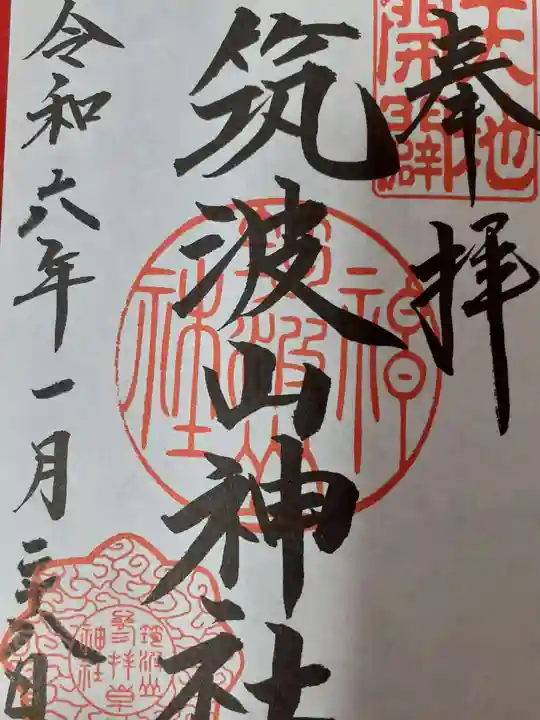 奉拝
天地開闢
筑波山神社
筑波山神社
令和六年一月二十八日
筑波山神社参拝章